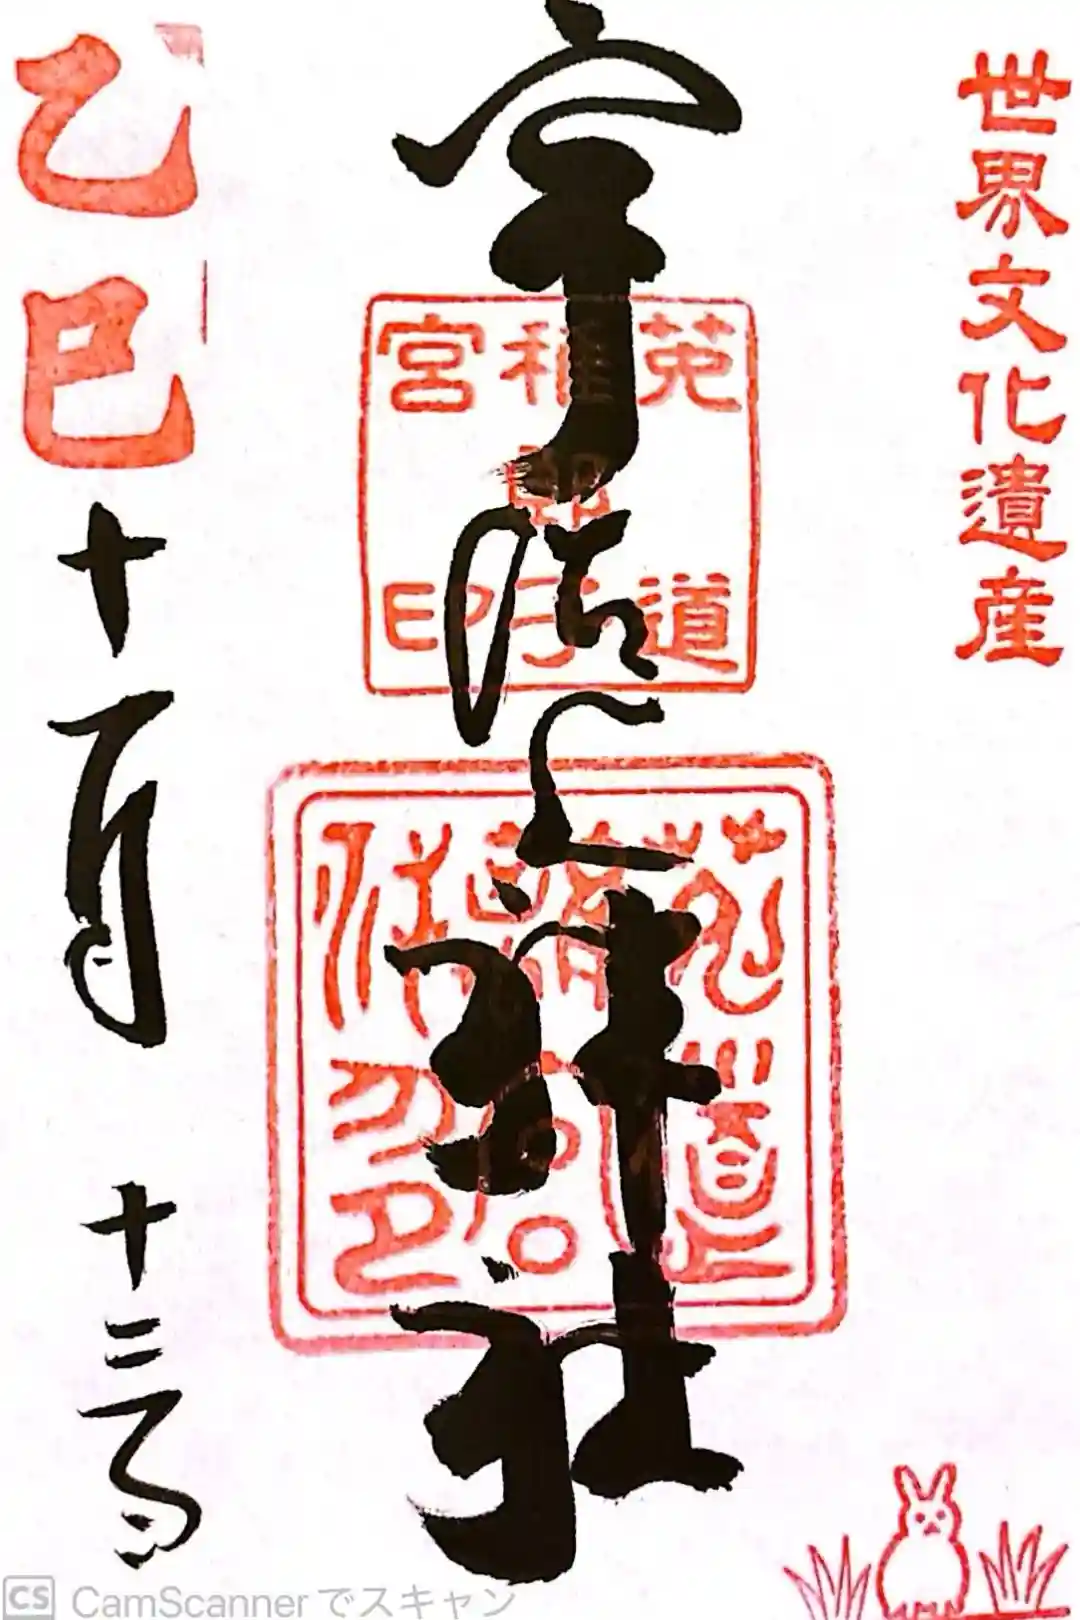 世界文化遺産
宇治上神社
菟道
稚郎子
宮印
乙巳
十一月
十三日
CS CamScannerでスキャン